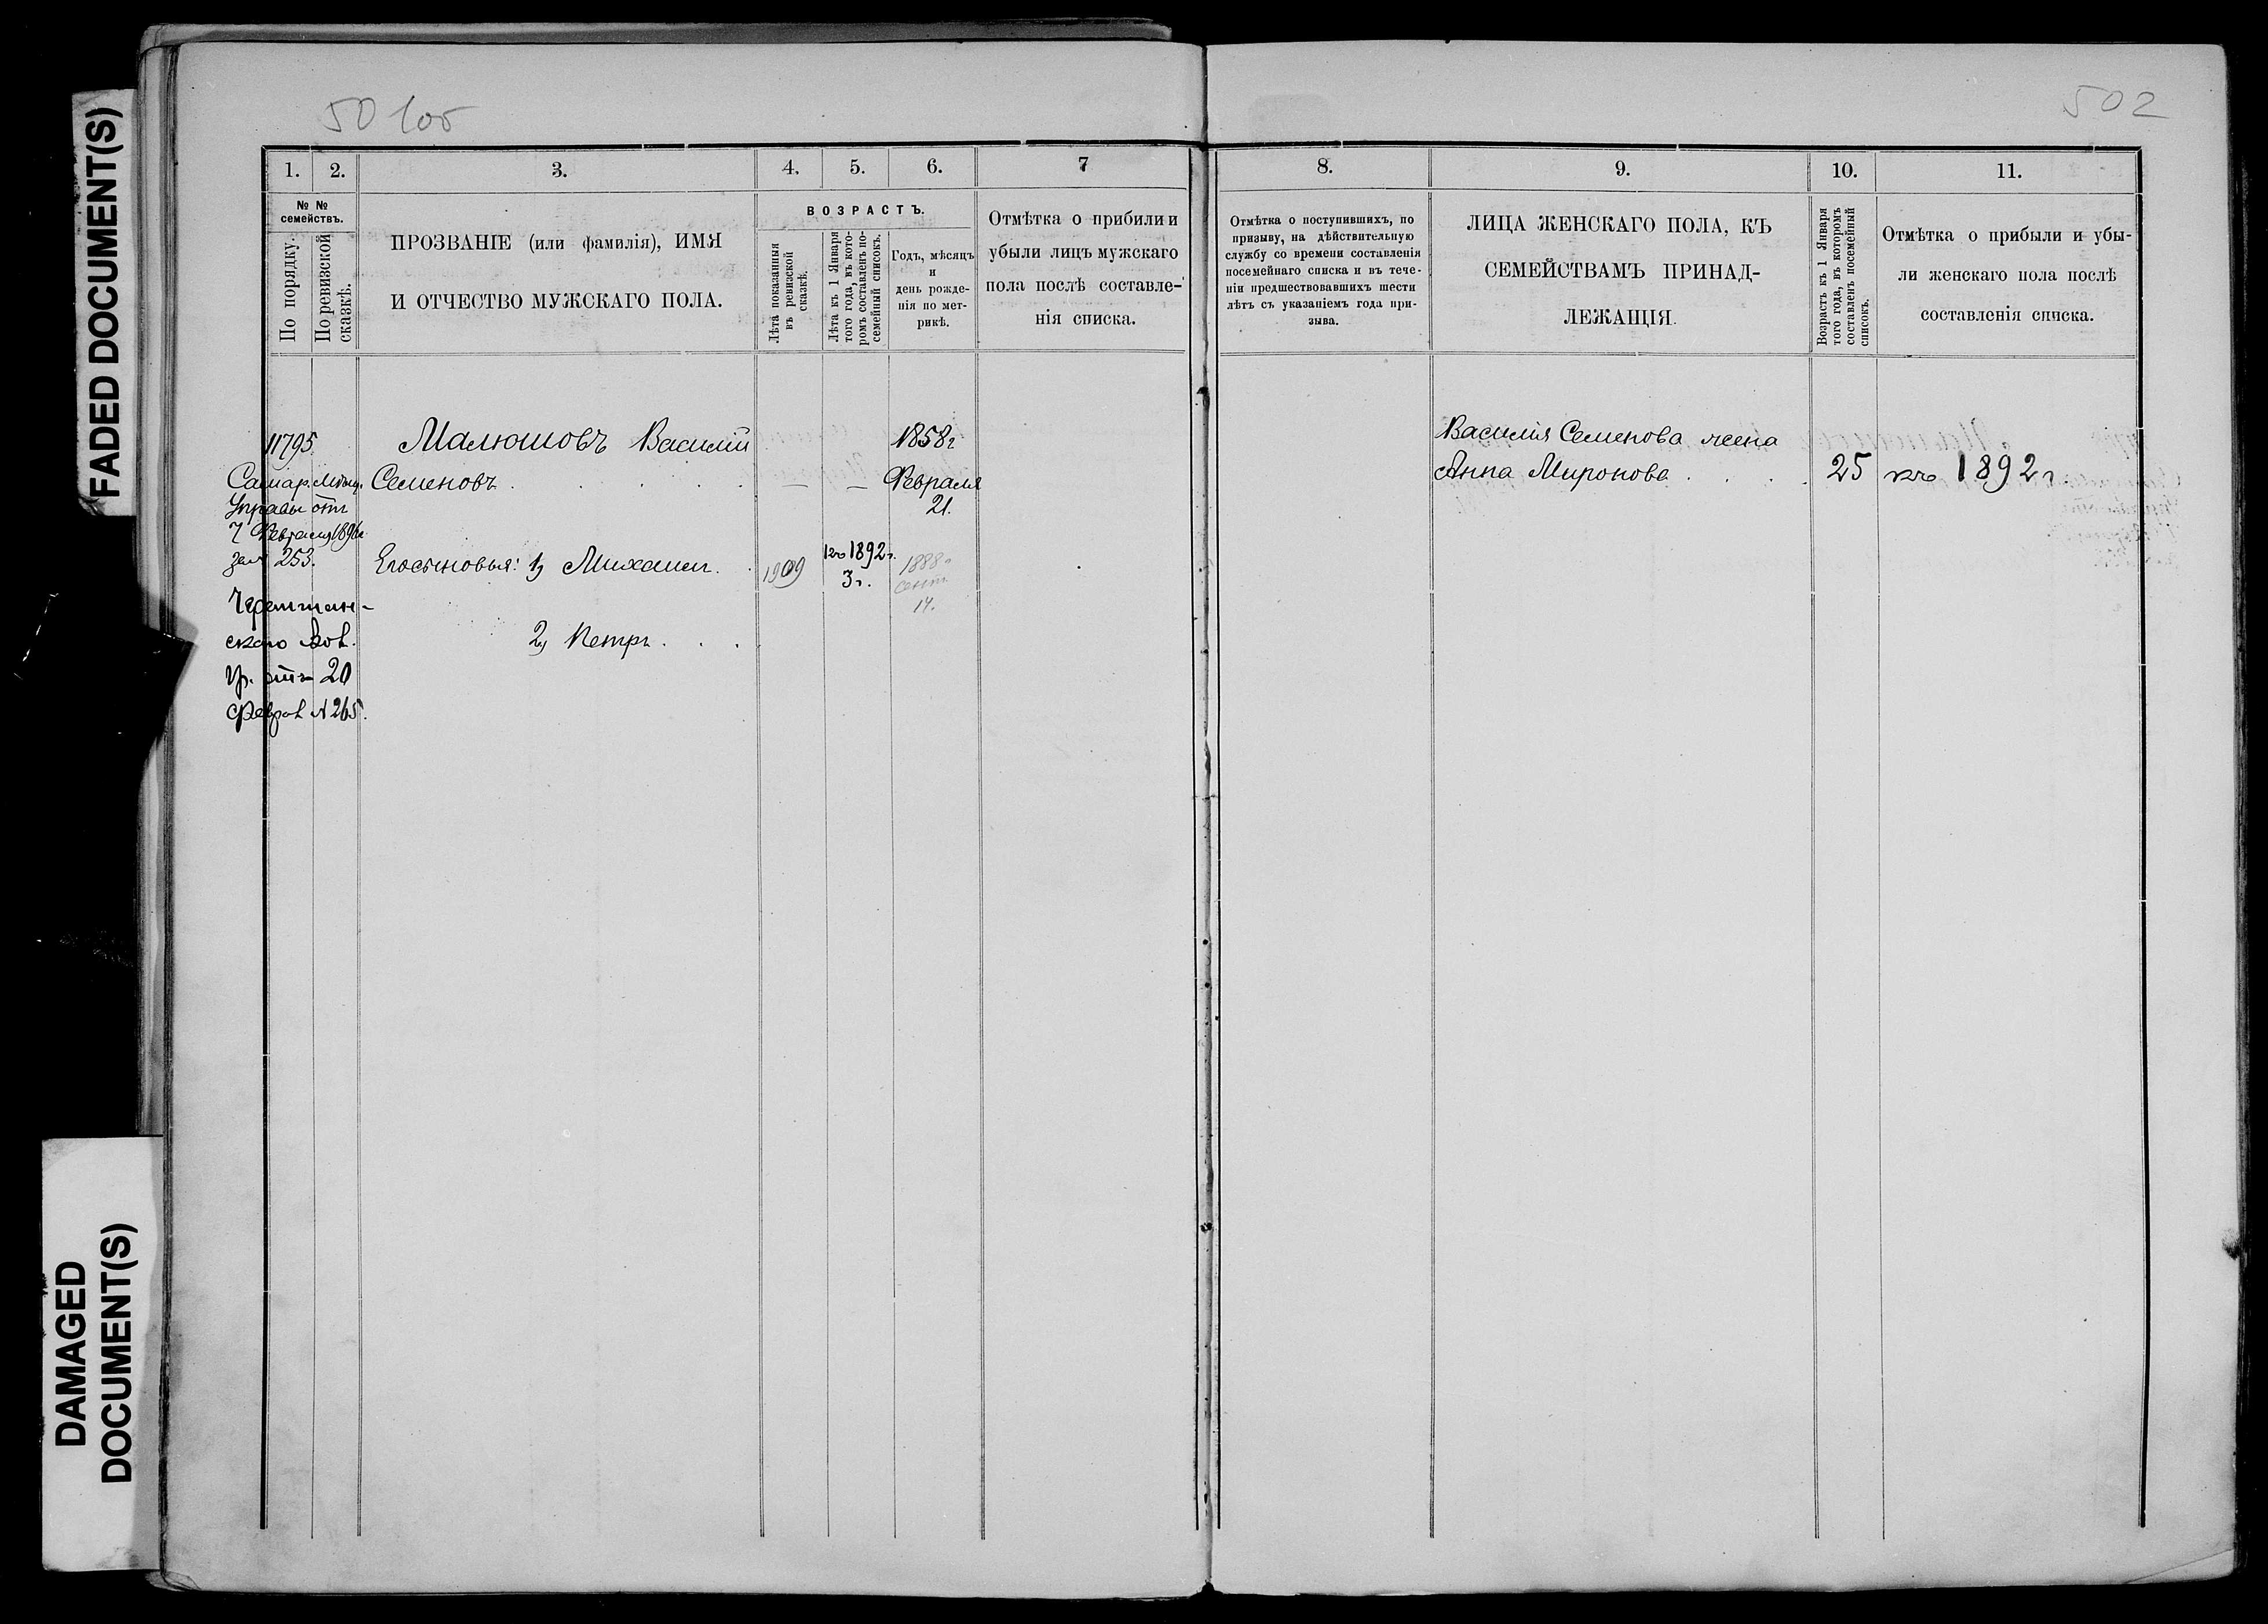 FADED DOCUMENT(S)
DAMAGED
DOCUMENT(S)
50 1об
502
1. 2. 3. 4. 5. 6. 7
№ №
семействъ.
По порядку.
По ревизской
сказкѣ.
ПРОЗВАНІЕ (или фамилія), ИМЯ
И ОТЧЕСТВО МУЖСКАГО ПОЛА.
ВОЗРАСТЪ.
Лѣта показанныя
въ ревизской
сказкѣ.
Лѣта къ 1 Января
того года, въ кото-
ромъ составленъ по-
семейный списокъ.
Годъ, мѣсяцъ
и
день рожде-
нія по мет-
рикѣ.
Отмѣтка о прибили и
убыли лицъ мужскаго
пола послѣ составле-
нія списка.
11795
Самар. Мѣщ.
Управы отъ
7 Февраля
за № 253.
ского Вол.
Пр. отъ 20
Феврал № 265.
Малюшовъ Василій
Семеновъ . . . . .
— —
1858 г
Февраля
21.
Его сыновья: 1) Михаилъ.
1909
къ 1892 г.
3 г.
1888 г
Сент.
14.
2) Петръ . . .
8. 9. 10. 11.
Отмѣтка о поступившихъ, по
призыву, на дѣйствительную
службу со времени составленія
посемейнаго списка и въ тече-
ніи предшествовавшихъ шести
лѣтъ съ указаніемъ года при-
зыва.
ЛИЦА ЖЕНСКАГО ПОЛА, КЪ
СЕМЕЙСТВАМЪ ПРИНАД-
ЛЕЖАЩІЯ.
Возрастъ къ 1 Января
того года, въ которомъ
составленъ посемейный
списокъ.
Отмѣтка о прибыли и убы-
ли женскаго пола послѣ
составленія списка.
Василія Семенова жена
Анна Миронова . . . . 25 къ 1892 г.